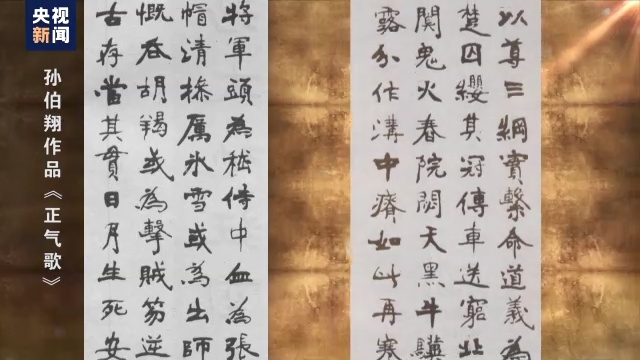 央视
新闻
孙伯翔作品《正气歌》
將軍頭為嵇侍中血為張
帽清操厲氷雪或為出師
慨吞胡羯或為擊賊笏逆
古存當其貫日月生死安
以尊三綱實繫命道義為
楚囚纓其冠傳車送窮北
闃鬼火春院閟天黑牛驥
露分作溝中瘠如此再寒